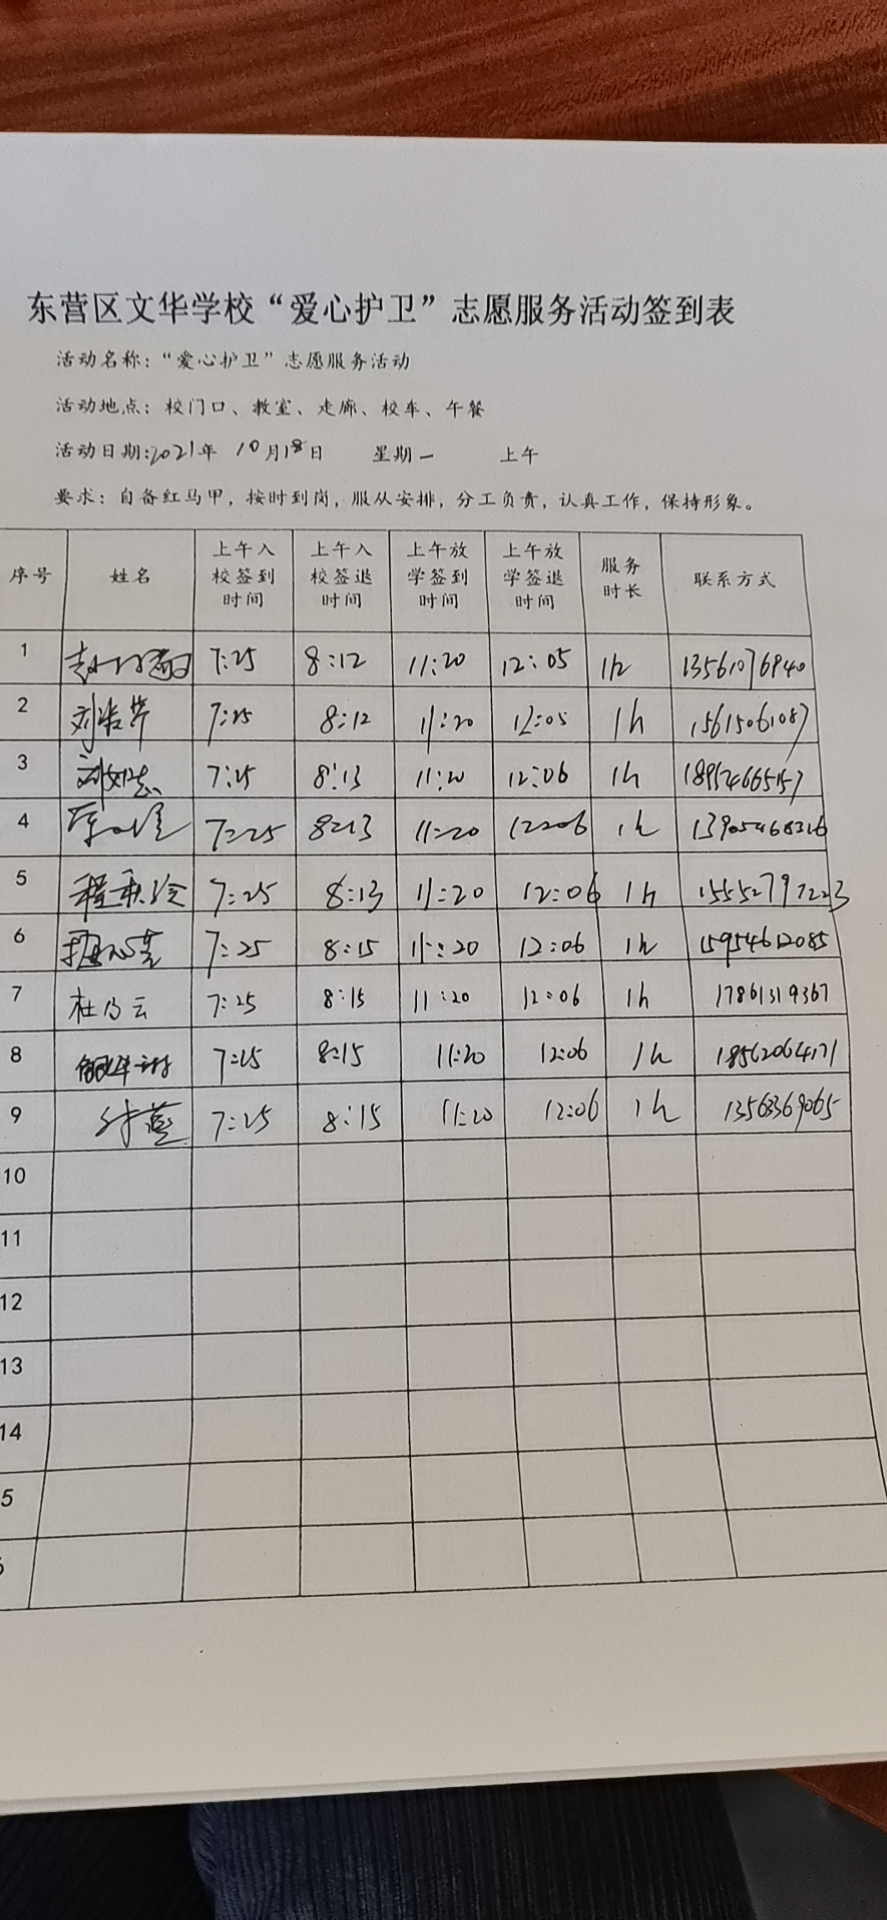 东营区文华学校“爱心护卫”志愿服务活动签到表
活动名称：“爱心护卫”志愿服务活动
活动地点：校门口、教室、走廊、校车、午餐
活动日期:2021年 10月18日 星期一 上午
要求：自备红马甲，按时到岗，服从安排，分工负责，认真工作，保持形象。
序号 姓名 上午入校签到时间 上午入校签退时间 上午放学签到时间 上午放学签退时间 服务时长 联系方式
1 7:25 8:12 11:20 12:05 1h 13561076940
2 7:25 8:12 11:20 12:05 1h 15615061087
3 7:25 8:13 11:20 12:06 1h 189524665157
4 7:25 8:13 11:20 12:06 1h 13905468326
5 7:25 8:13 11:20 12:06 1h 15552797223
6 7:25 8:15 11:20 12:06 1h 15954612085
7 杜乃云 7:25 8:15 11:20 12:06 1h 17861319367
8 7:25 8:15 11:20 12:06 1h 18562064171
9 7:25 8:15 11:20 12:06 1h 13563369065
10
11
12
13
14
5